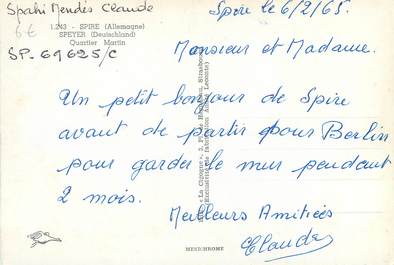 Spahi Mendès Claude
6€
1.243 - SPIRE (Allemagne)
SPEYER (Deutschland)
Quartier Martin
SP. 69625/C
Spire le 6/2/65.
Monsieur et Madame.
Un petit bonjour de Spire
avant de partir pour Berlin
pour garder le mur pendant
2 mois.
Meilleurs Amitiées
Claude
"La Cigogne",
Strasbourg
MEXICHROME